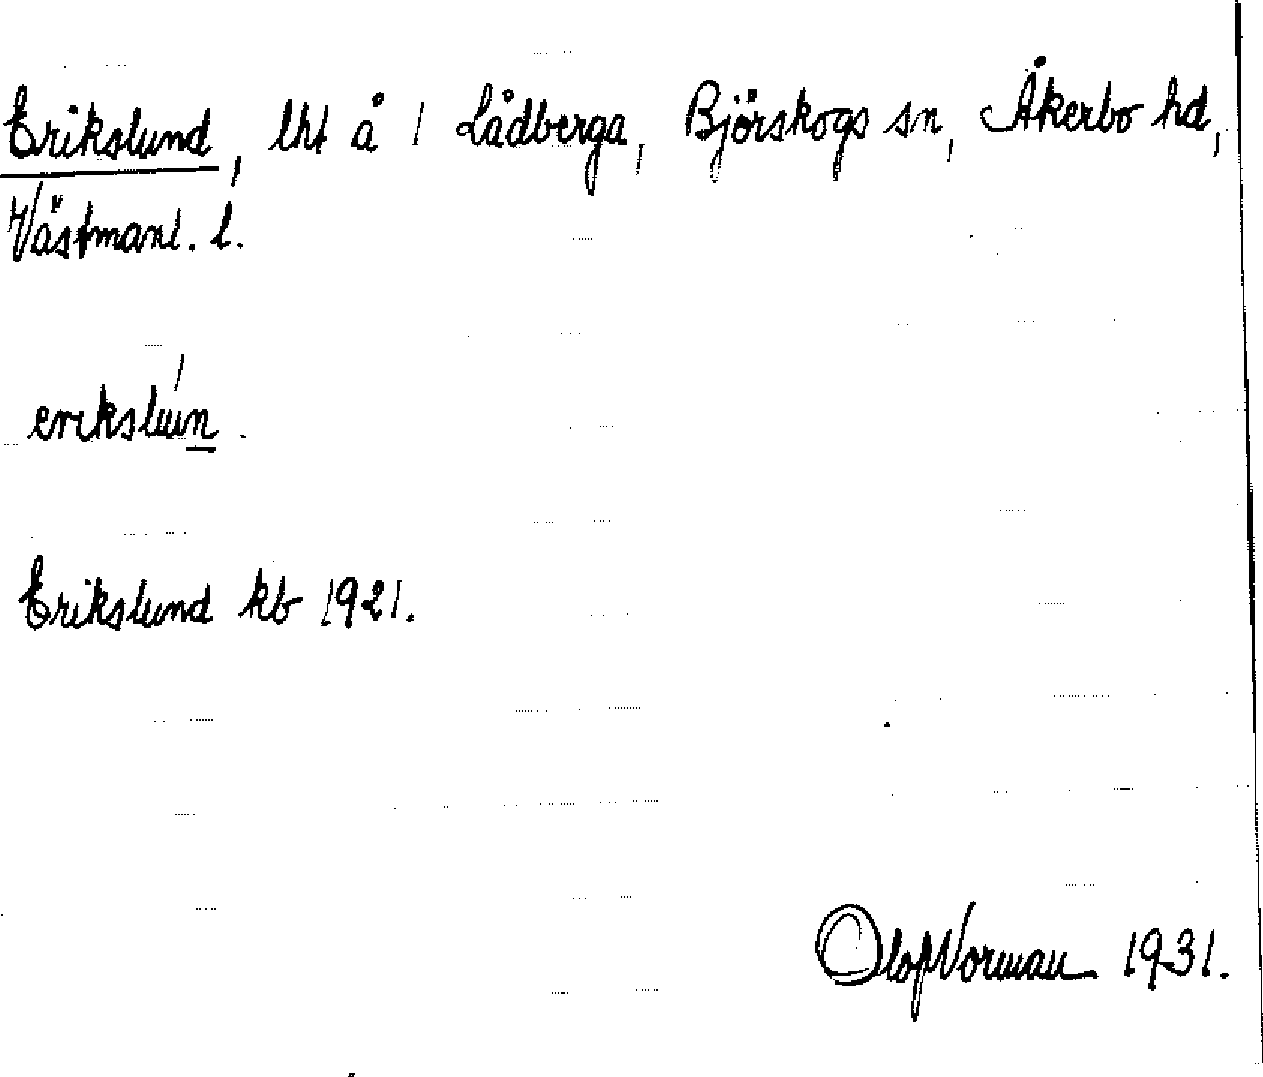 Erikslund, lht å 1 Lådberga, Björskogs sn, Åkerbo hd,
Västmanl. l.
erikslun.
Erikslund kb 1921.
Olof Norman 1931.